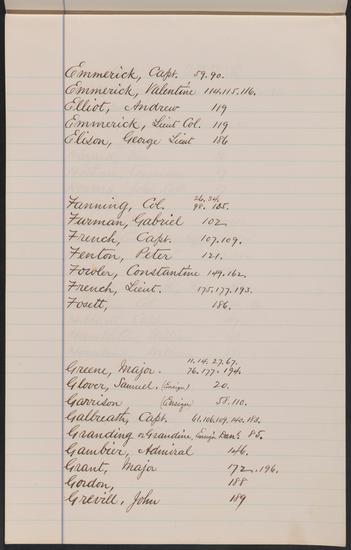 Emmerick, Capt. 59.90.
Emmerick, Valentine 114.115.116.
Elliot, Andrew 119
Emmerick, Lieut Col. 119
Elison, George Lieut 186
26.34.
Fanning, Col. 98. 185.
Furman, Gabriel 102.
French, Capt. 107.109.
Fenton, Peter 121.
Fowler, Constantine 149.162.
French, Lieut. 175.177.193.
Fosett, 186.
11.14.27.67.
Greene, Major. 76.177.194.
Glover, Samuel. (Ensign) 20.
Garrison (Ensign 58.110.
Galbreath, Capt. 61.106.109.140.183.
Granding or Grandine, Ensign 85.
Gambier, Admiral 146.
Grant, Major 172.196.
Gordon, 188
Grevill, John 189